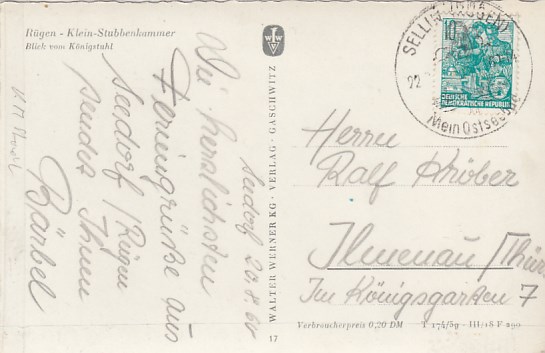 Rügen - Klein-Stubbenkammer
Blick vom Königstuhl
Seedorf 20.8.60
Die herzlichsten
Feriengrüße aus
Seedorf / Rügen
sendet Ihnen
Bärbel
WALTER WERNER KG · VERLAG · GASCHWITZ
17
W W
SELLIN (RÜGEN)
22
Mein Ostseebad
10
DEUTSCHE
DEMOKRATISCHE REPUBLIK
Herrn
Ralf Kröber
Ilmenau / Thür
Im Königsgarten 7
Verbraucherpreis 0,20 DM T 174/59 - III/18 F 290